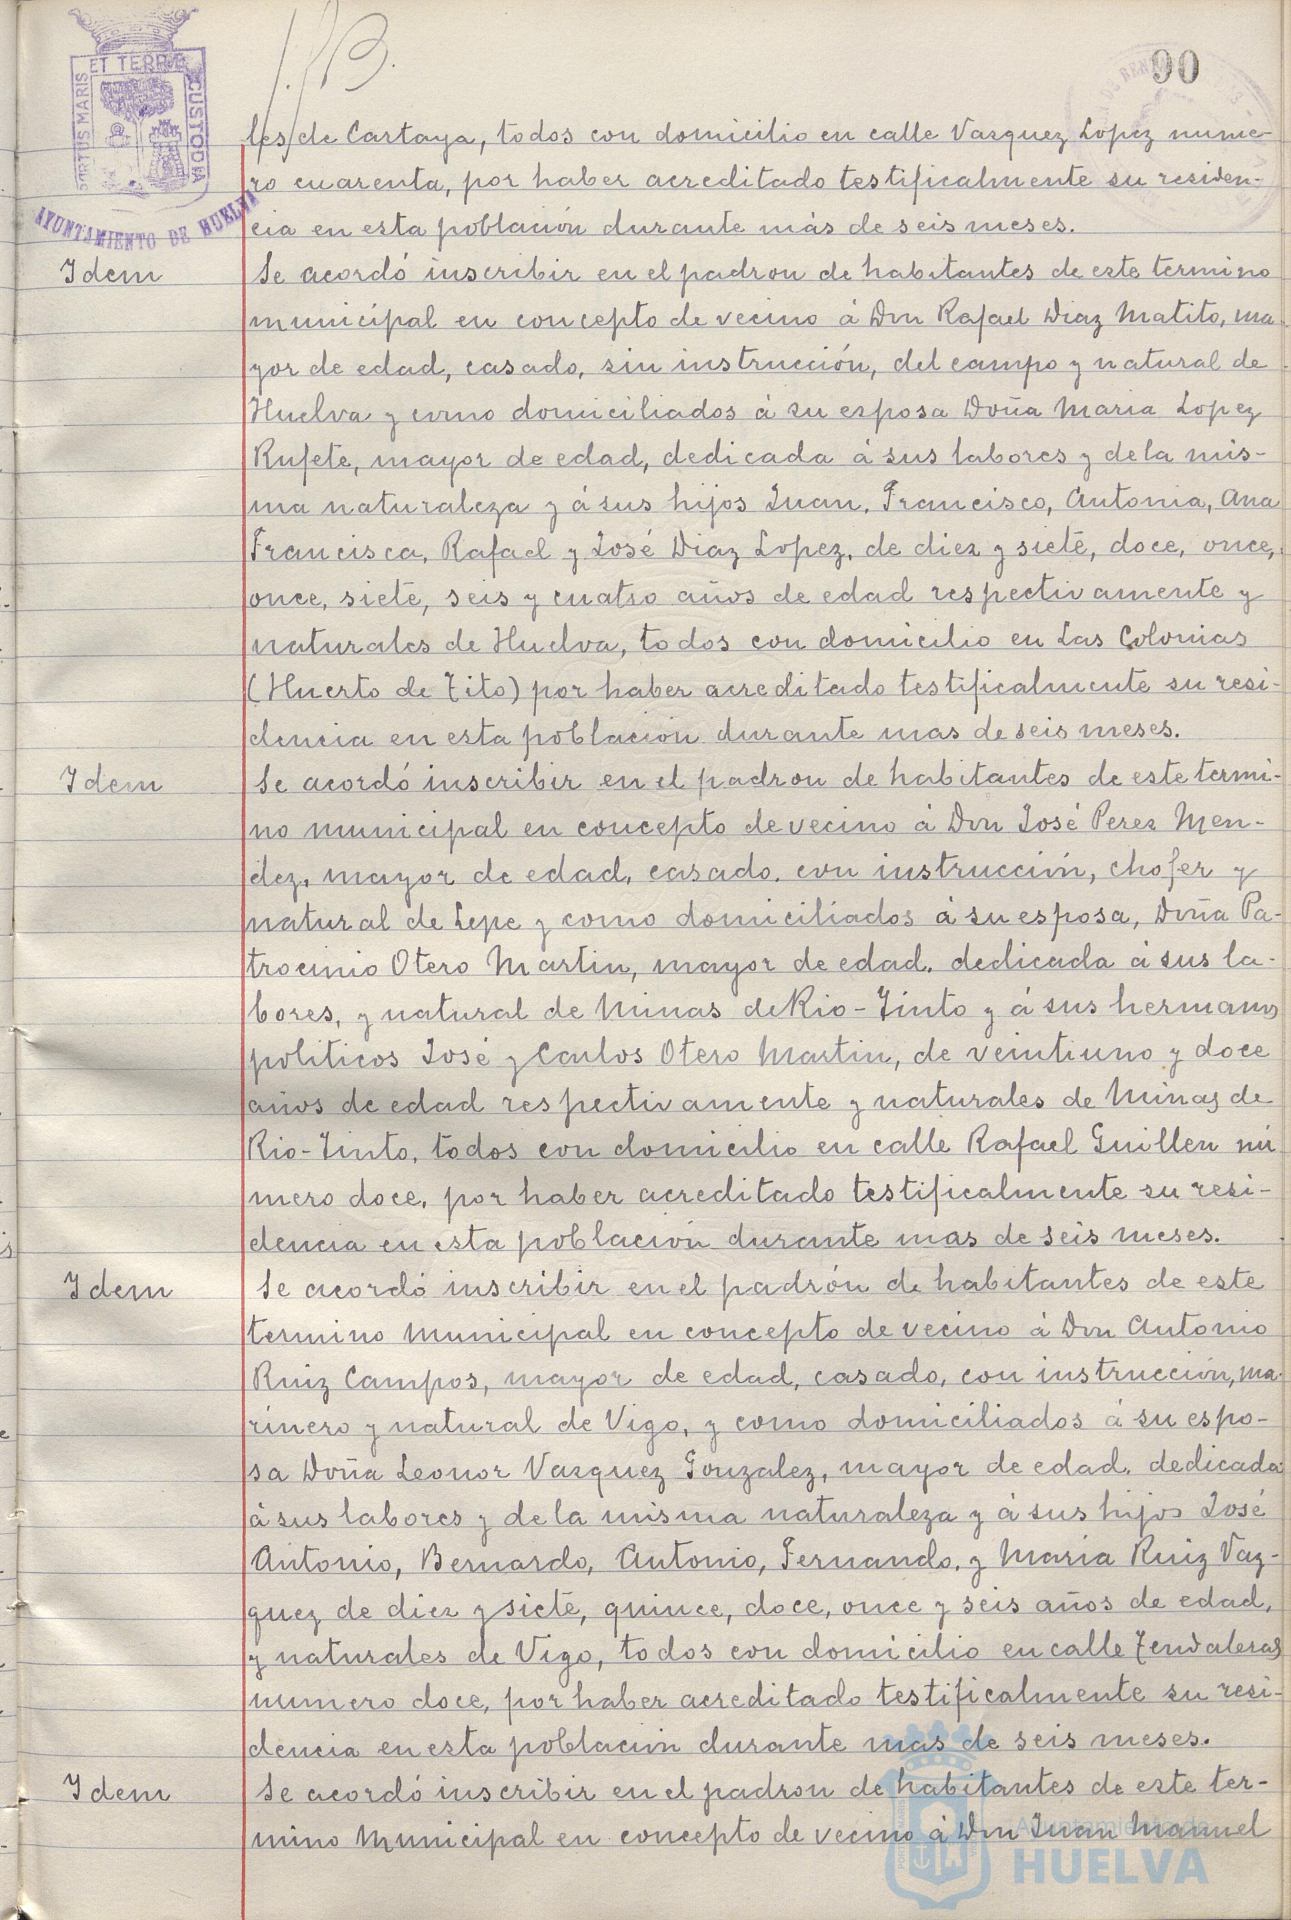 90
PORTUS MARIS ET TERRÆ CUSTODIA
AYUNTAMIENTO DE HUELVA
les de Cartaya, todos con domicilio en calle Vazquez Lopez nume-
ro cuarenta, por haber acreditado testificalmente su residen-
cia en esta población durante más de seis meses.
Idem
Se acordó inscribir en el padron de habitantes de este termino
municipal en concepto de vecino á Don Rafael Diaz Matito, ma-
yor de edad, casado, sin instrucción, del campo y natural de
Huelva y como domiciliados á su esposa Doña Maria Lopez
Rufete, mayor de edad, dedicada á sus labores y de la mis-
ma naturaleza y á sus hijos Juan, Francisco, Antonia, Ana
Francisca, Rafael y José Diaz Lopez, de diez y siete, doce, once,
once, siete, seis y cuatro años de edad respectivamente y
naturales de Huelva, todos con domicilio en Las Colonias
(Huerto de Tito) por haber acreditado testificalmente su resi-
dencia en esta población durante mas de seis meses.
Idem
Se acordó inscribir en el padron de habitantes de este termi-
no municipal en concepto de vecino á Don José Perez Men-
dez, mayor de edad, casado, con instrucción, chofer y
natural de Lepe y como domiciliados á su esposa, Doña Pa-
trocinio Otero Martin, mayor de edad, dedicada á sus la-
bores, y natural de Minas de Rio-Tinto y á sus hermanos
politicos José y Carlos Otero Martin, de veintiuno y doce
años de edad respectivamente y naturales de Minas de
Rio-Tinto, todos con domicilio en calle Rafael Guillen nú
mero doce, por haber acreditado testificalmente su resi-
dencia en esta población durante mas de seis meses.
Idem
Se acordó inscribir en el padrón de habitantes de este
termino municipal en concepto de vecino á Don Antonio
Ruiz Campos, mayor de edad, casado, con instrucción, ma-
rinero y natural de Vigo, y como domiciliados á su espo-
sa Doña Leonor Vazquez Gonzalez, mayor de edad, dedicada
á sus labores y de la misma naturaleza y á sus hijos José
Antonio, Bernardo, Antonio, Fernando, y Maria Ruiz Vaz-
quez de diez y siete, quince, doce, once y seis años de edad,
y naturales de Vigo, todos con domicilio en calle Tendaleras
numero doce, por haber acreditado testificalmente su resi-
dencia en esta población durante mas de seis meses.
Idem
Se acordó inscribir en el padron de habitantes de este ter-
mino municipal en concepto de vecino á Don Juan Manuel
Ayuntamiento de
HUELVA